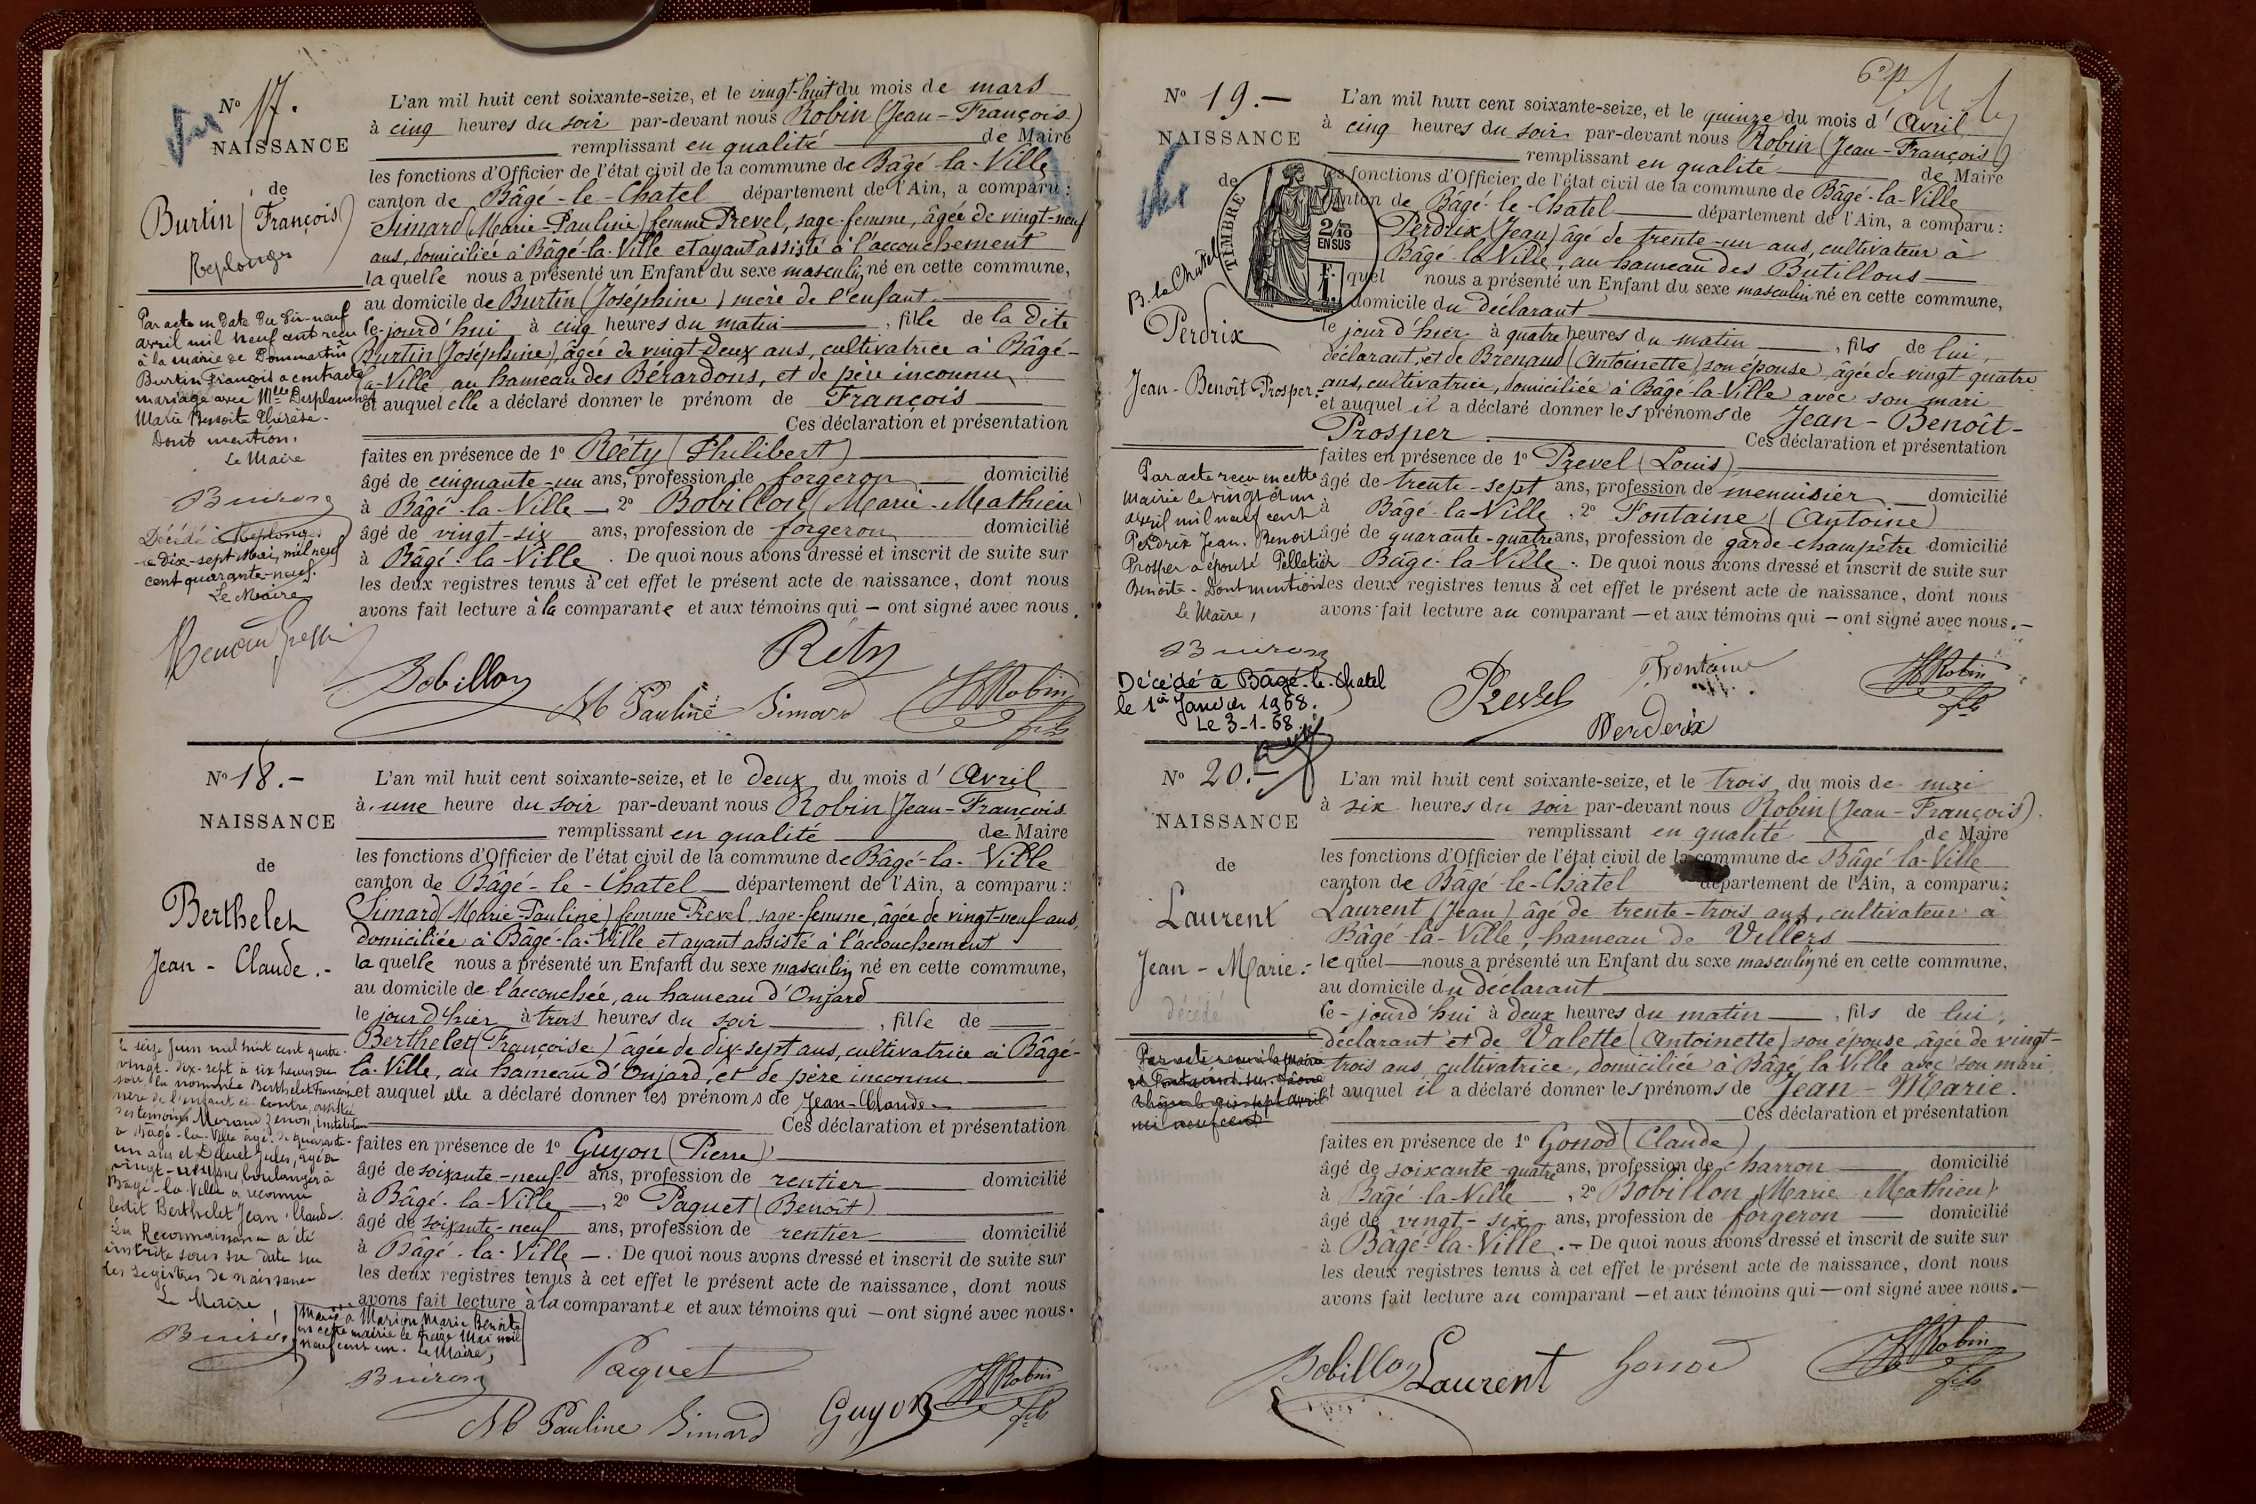 N° 17.
NAISSANCE
de
Burtin (François)
Replonges
Par acte en date du dix-neuf
avril mil neuf cent reçu
à la mairie de Dommartin
Burtin François a contracté
mariage avec Mlle Desplanches
Marie Benoite Thérèse.
Dont mention.
Le Maire
Buiron
Décédé à Replonges
le dix-sept Mai, mil neuf
cent quarante-neuf.
Le Maire
L'an mil huit cent soixante-seize, et le vingt-huit du mois de mars
à cinq heures du soir par-devant nous Robin (Jean-François)
remplissant en qualité de Maire
les fonctions d'Officier de l'état civil de la commune de Bâgé-la-Ville
canton de Bâgé-le-Chatel département de l'Ain, a comparu :
Simard (Marie-Pauline) femme Prevel, sage-femme, âgée de vingt-neuf
ans, domiciliée à Bâgé-la-Ville et ayant assisté à l'accouchement
laquelle nous a présenté un Enfant du sexe masculin né en cette commune,
au domicile de Burtin (Joséphine) mère de l'enfant.
ce-jourd'hui à cinq heures du matin, fille de la dite
Burtin (Joséphine), âgée de vingt-deux ans, cultivatrice à Bâgé-
la-Ville au hameau des Bérardons, et de père inconnu
et auquel elle a déclaré donner le prénom de François
Ces déclaration et présentation
faites en présence de 1° Réty (Philibert)
âgé de cinquante-un ans, profession de forgeron domicilié
à Bâgé-la-Ville — 2° Bobillon (Marie-Mathieu)
âgé de vingt-six ans, profession de forgeron domicilié
à Bâgé-la-Ville. De quoi nous avons dressé et inscrit de suite sur
les deux registres tenus à cet effet le présent acte de naissance, dont nous
avons fait lecture à la comparante et aux témoins qui — ont signé avec nous.
Réty
Bobillon
M Pauline Simard
Robin
fils
N° 18.-
NAISSANCE
de
Berthelet
Jean - Claude.-
Le seize Juin mil huit cent quatre-
vingt-dix-sept à six heures du
soir la nommée Berthelet Françoise
mère de l'enfant ci-contre, assistée
des témoins Morand Zénon, instituteur
à Bâgé-la-Ville âgé de quarante-
un ans et Jules, âgé de
vingt- boulanger à
Bâgé-la-Ville a reconnu
ledit Berthelet Jean Claude.
La Reconnaissance a été
inscrite sous sa date sur
les registres de naissance
Le Maire,
Buiron
Marié à Marion Marie Benoite
en cette mairie le treize Mai mil
neuf cent un. Le Maire,
Buiron
L'an mil huit cent soixante-seize, et le deux du mois d'Avril
à une heure du soir par-devant nous Robin (Jean-François
remplissant en qualité de Maire
les fonctions d'Officier de l'état civil de la commune de Bâgé-la-Ville
canton de Bâgé-le-Chatel — département de l'Ain, a comparu :
Simard (Marie-Pauline) femme Prevel, sage-femme, âgée de vingt-neuf ans,
domiciliée à Bâgé-la-Ville et ayant assisté à l'accouchement
laquelle nous a présenté un Enfant du sexe masculin né en cette commune,
au domicile de l'accouchée, au hameau d'Onjard
le jour d'hier à trois heures du soir, fille de
Berthelet (Françoise) âgée de dix-sept ans, cultivatrice à Bâgé-
la-Ville, au hameau d'Onjard, et de père inconnu
et auquel elle a déclaré donner les prénoms de Jean-Claude.
Ces déclaration et présentation
faites en présence de 1° Guyon (Pierre)
âgé de soixante-neuf ans, profession de rentier domicilié
à Bâgé-la-Ville —, 2° Paquet (Benoît)
âgé de soixante-neuf ans, profession de rentier domicilié
à Bâgé-la-Ville —. De quoi nous avons dressé et inscrit de suite sur
les deux registres tenus à cet effet le présent acte de naissance, dont nous
avons fait lecture à la comparante et aux témoins qui — ont signé avec nous.
Paquet
M Pauline Simard
Guyon
Robin
fils
N° 19.—
NAISSANCE
de
B. le Chatel
Perdrix
Jean-Benoît Prosper.-
Par acte reçu en cette
mairie le vingt et un
avril mil neuf cent
Perdrix Jean-Benoit
Prosper a épousé Pelletier
Benoite - Dont mention
Le Maire,
Buiron
Décédé à Bâgé-le-Chatel
le 1er Janvier 1968.
Le 3-1-68.
TIMBRE
2/10
EN SUS
L'an mil huit cent soixante-seize, et le quinze du mois d'Avril
à cinq heures du soir par-devant nous Robin (Jean-François)
remplissant en qualité de Maire
les fonctions d'Officier de l'état civil de la commune de Bâgé-la-Ville
canton de Bâgé-le-Chatel — département de l'Ain, a comparu :
Perdrix (Jean) âgé de trente-un ans, cultivateur à
Bâgé-la-Ville, au hameau des Butillons
quel nous a présenté un Enfant du sexe masculin né en cette commune,
domicile du déclarant
le jour d'hier à quatre heures du matin, fils de lui,
déclarant, et de Brenaud (Antoinette) son épouse, âgée de vingt-quatre
ans, cultivatrice, domiciliée à Bâgé-la-Ville avec son mari
et auquel il a déclaré donner les prénoms de Jean-Benoît-
Prosper. Ces déclaration et présentation
faites en présence de 1° Prevel (Louis)
âgé de trente-sept ans, profession de menuisier domicilié
à Bâgé-la-Ville, 2° Fontaine (Antoine)
âgé de quarante-quatre ans, profession de garde-champêtre domicilié
Bâgé-la-Ville. De quoi nous avons dressé et inscrit de suite sur
les deux registres tenus à cet effet le présent acte de naissance, dont nous
avons fait lecture au comparant — et aux témoins qui — ont signé avec nous.-
Prevel
Fontaine
Perderix
Robin
fils
N° 20.-
NAISSANCE
de
Laurent
Jean - Marie.-
décédé
L'an mil huit cent soixante-seize, et le trois du mois de mai
à six heures du soir par-devant nous Robin (Jean-François)
remplissant en qualité de Maire
les fonctions d'Officier de l'état civil de la commune de Bâgé-la-Ville
canton de Bâgé-le-Châtel département de l'Ain, a comparu :
Laurent (Jean) âgé de trente-trois ans, cultivateur à
Bâgé-la-Ville, hameau de Villers
lequel — nous a présenté un Enfant du sexe masculin né en cette commune,
au domicile du déclarant
ce-jourd'hui à deux heures du matin —, fils de lui,
déclarant et de Valette (Antoinette) son épouse, âgée de vingt-
trois ans, cultivatrice, domiciliée à Bâgé-la-Ville avec son mari
et auquel il a déclaré donner les prénoms de Jean-Marie.
Ces déclaration et présentation
faites en présence de 1° Gonod (Claude)
âgé de soixante-quatre ans, profession de charron domicilié
à Bâgé-la-Ville —, 2° Bobillon (Marie Mathieu)
âgé de vingt-six ans, profession de forgeron — domicilié
à Bâgé-la-Ville.- De quoi nous avons dressé et inscrit de suite sur
les deux registres tenus à cet effet le présent acte de naissance, dont nous
avons fait lecture au comparant — et aux témoins qui — ont signé avec nous.—
Bobillon
Laurent
Gonod
Robin
fils